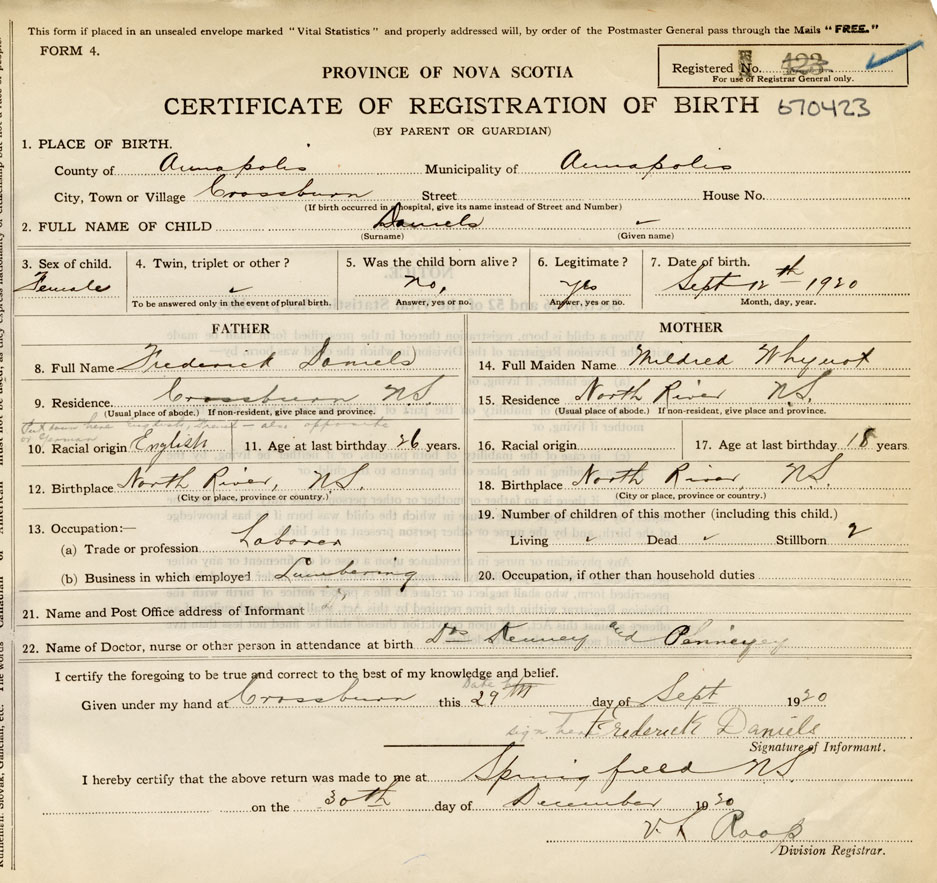 This form if placed in an unsealed envelope marked "Vital Statistics" and properly addressed will, by order of the Postmaster General pass through the Mails "FREE."
FORM 4.
Registered No. 423
For use of Registrar General only.
PROVINCE OF NOVA SCOTIA
CERTIFICATE OF REGISTRATION OF BIRTH 670423
(BY PARENT OR GUARDIAN)
1. PLACE OF BIRTH.
County of Annapolis Municipality of Annapolis
City, Town or Village Crossburn Street House No.
(If birth occurred in a hospital, give its name instead of Street and Number)
2. FULL NAME OF CHILD Daniels
(Surname) (Given name)
3. Sex of child. 4. Twin, triplet or other? 5. Was the child born alive? 6. Legitimate? 7. Date of birth.
Female No, yes Sept 12th 1920
To be answered only in the event of plural birth. Answer, yes or no. Answer, yes or no. Month, day, year.
FATHER MOTHER
8. Full Name Frederick Daniels 14. Full Maiden Name Mildred Whynot
9. Residence. Crossburn N.S. 15. Residence North River N.S.
(Usual place of abode.) If non-resident, give place and province. (Usual place of abode.) If non-resident, give place and province.
10. Racial origin English 11. Age at last birthday 26 years. 16. Racial origin 17. Age at last birthday 18 years
12. Birthplace North River, N.S. 18. Birthplace North River, N.S.
(City or place, province or country.) (City or place, province or country.)
13. Occupation:— 19. Number of children of this mother (including this child.)
(a) Trade or profession Laborer Living Dead Stillborn 2
(b) Business in which employed Lumbering 20. Occupation, if other than household duties
21. Name and Post Office address of Informant
22. Name of Doctor, nurse or other person in attendance at birth Drs Kenney and
I certify the foregoing to be true and correct to the best of my knowledge and belief.
Given under my hand at Crossburn this 29th day of Sept 1920
sign here Frederick Daniels
Signature of Informant.
I hereby certify that the above return was made to me at Springfield N.S.
on the 30th day of December 1920
V. L Roop
Division Registrar.